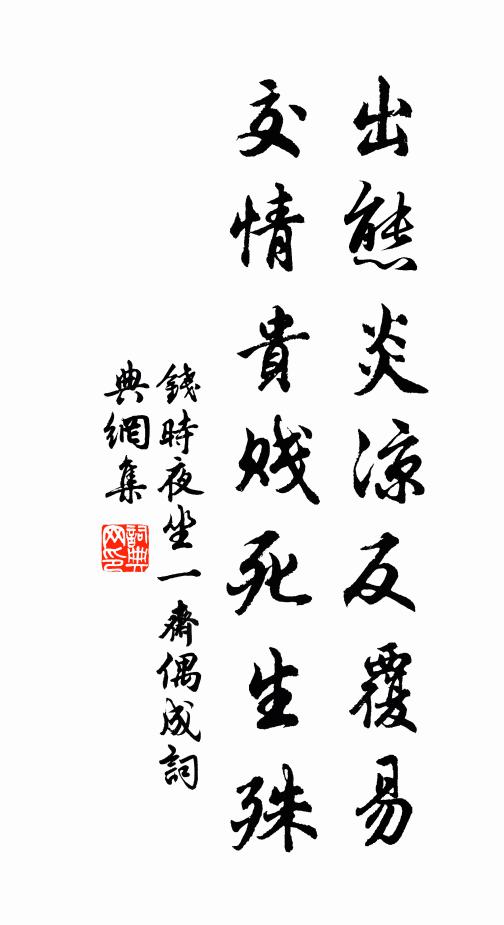 出態炎涼反覆易
交情貴賤死生殊
錢時夜坐一齋偶成詞
典網集
詞典
网印